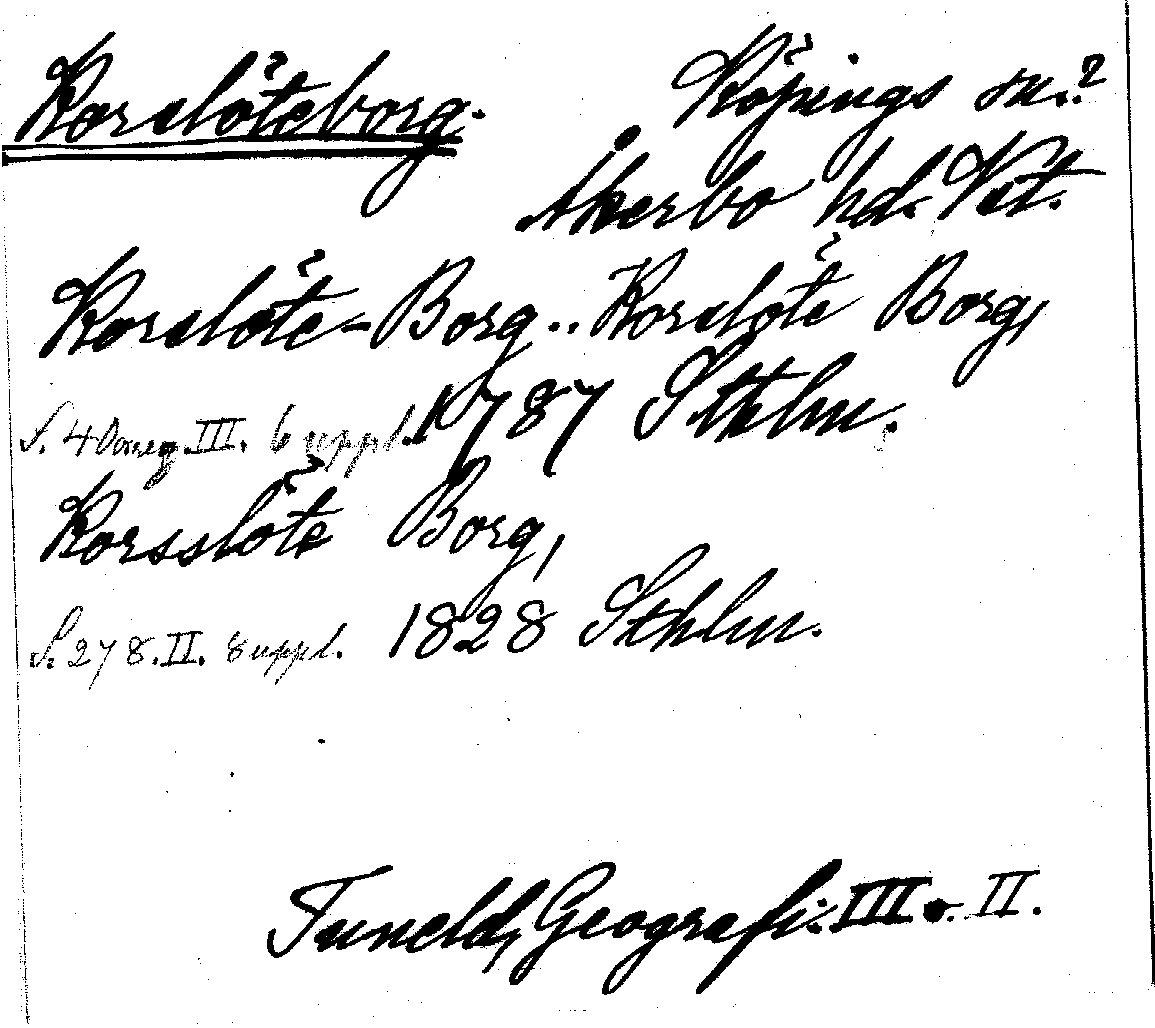 Korslöteborg.
Köpings sn.?
Åkerbo hd. Vst.
Korslöte-Borg.. Korslöte Borg,
S. 40 III. 6 uppl. 1787 Sthlm.
Korsslöte Borg,
S. 278. II. 8 uppl. 1828 Sthlm.
Tuneld, Geografi. III o. II.